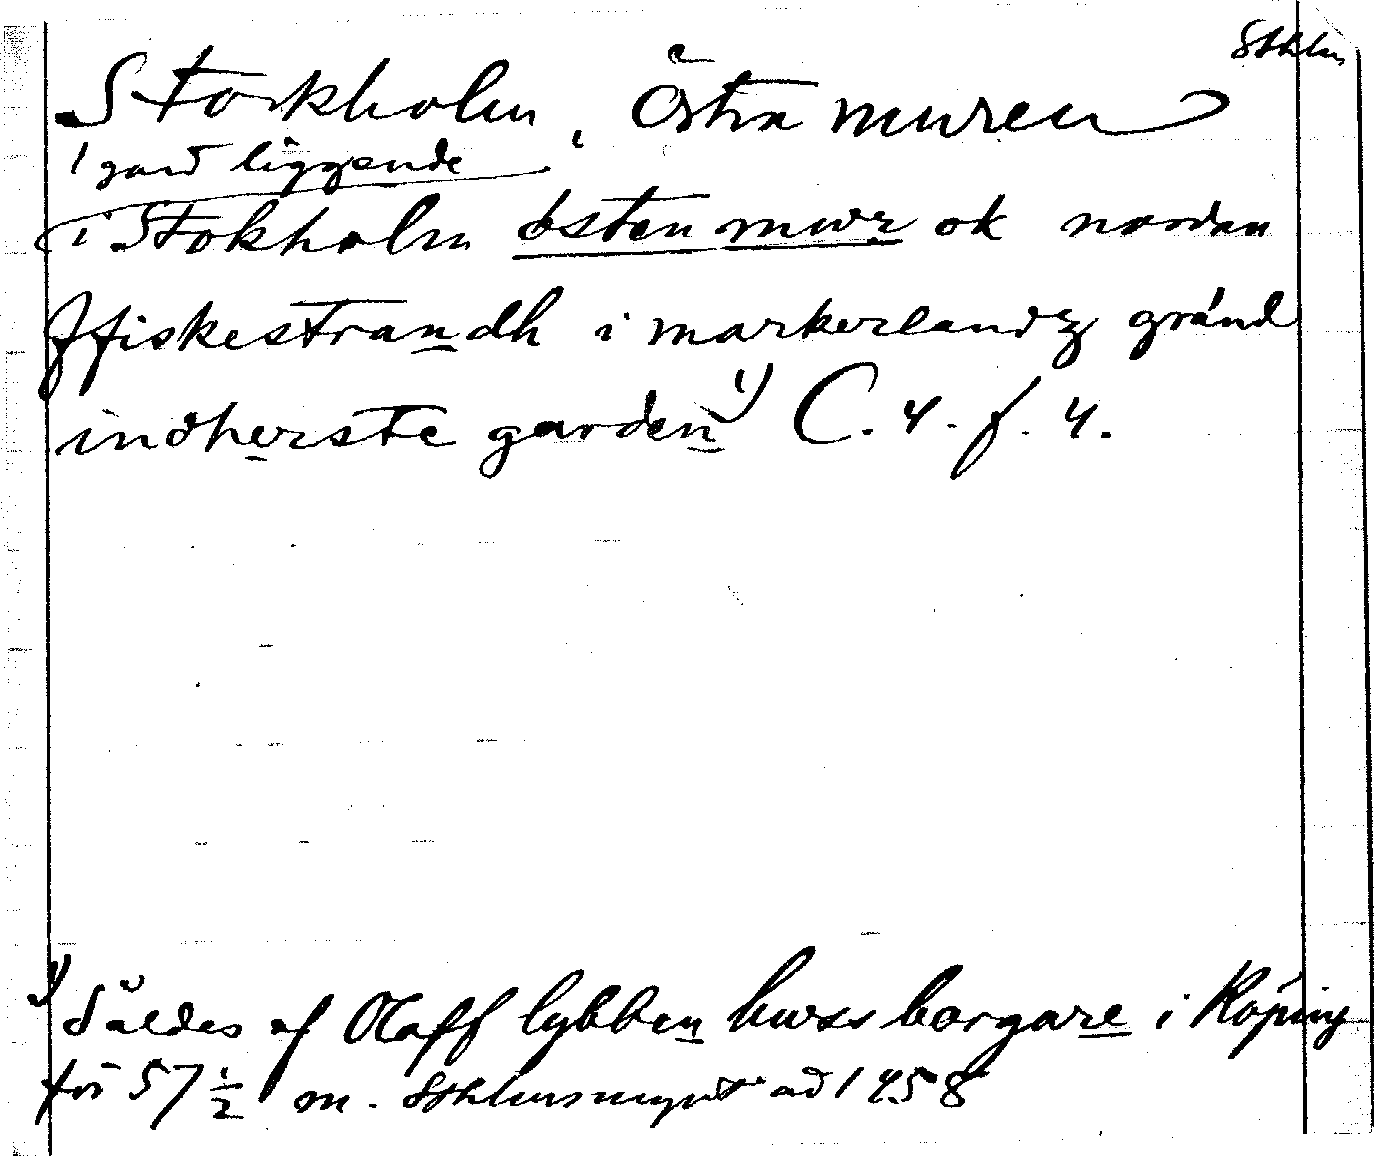 Sthlm
Stockholm, Östra muren
1 gard liggende
i Stokholm østen mwr ok nordan
ffiskestrandh i markerlandz gränd
indherste garden 1) C. 4. f. 4.
1) Såldes af Olaff lybben hwss borgare i Köping
för 57 1/2 m. Sthlmsmynt ad 1458